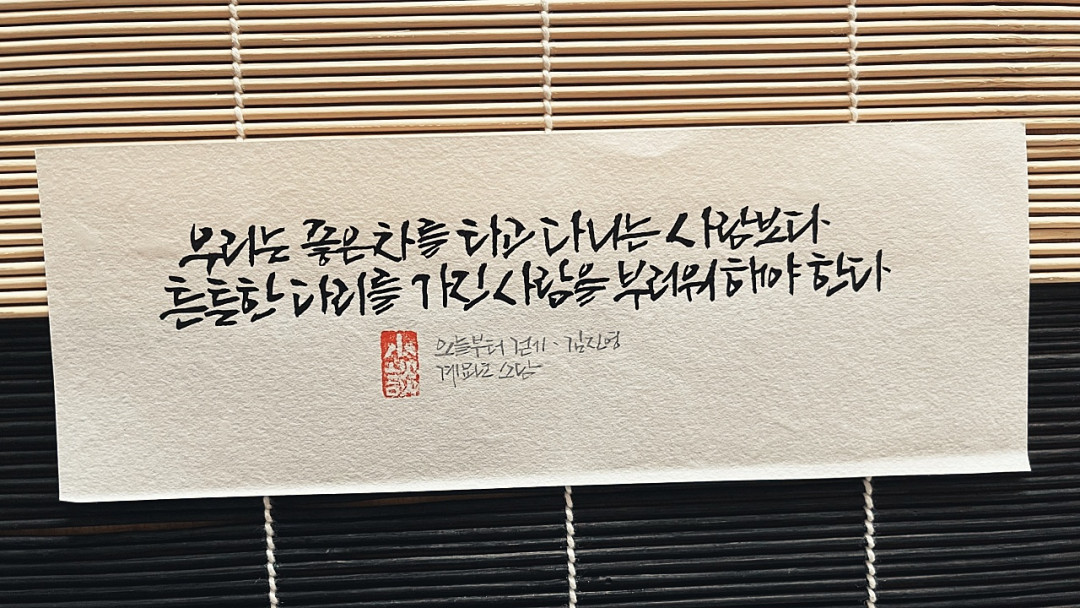 우리는 좋은차를 타고 다니는 사람보다
튼튼한 다리를 가진 사람을 부러워해야 한다
오늘부터 걷기 · 김진영
소담